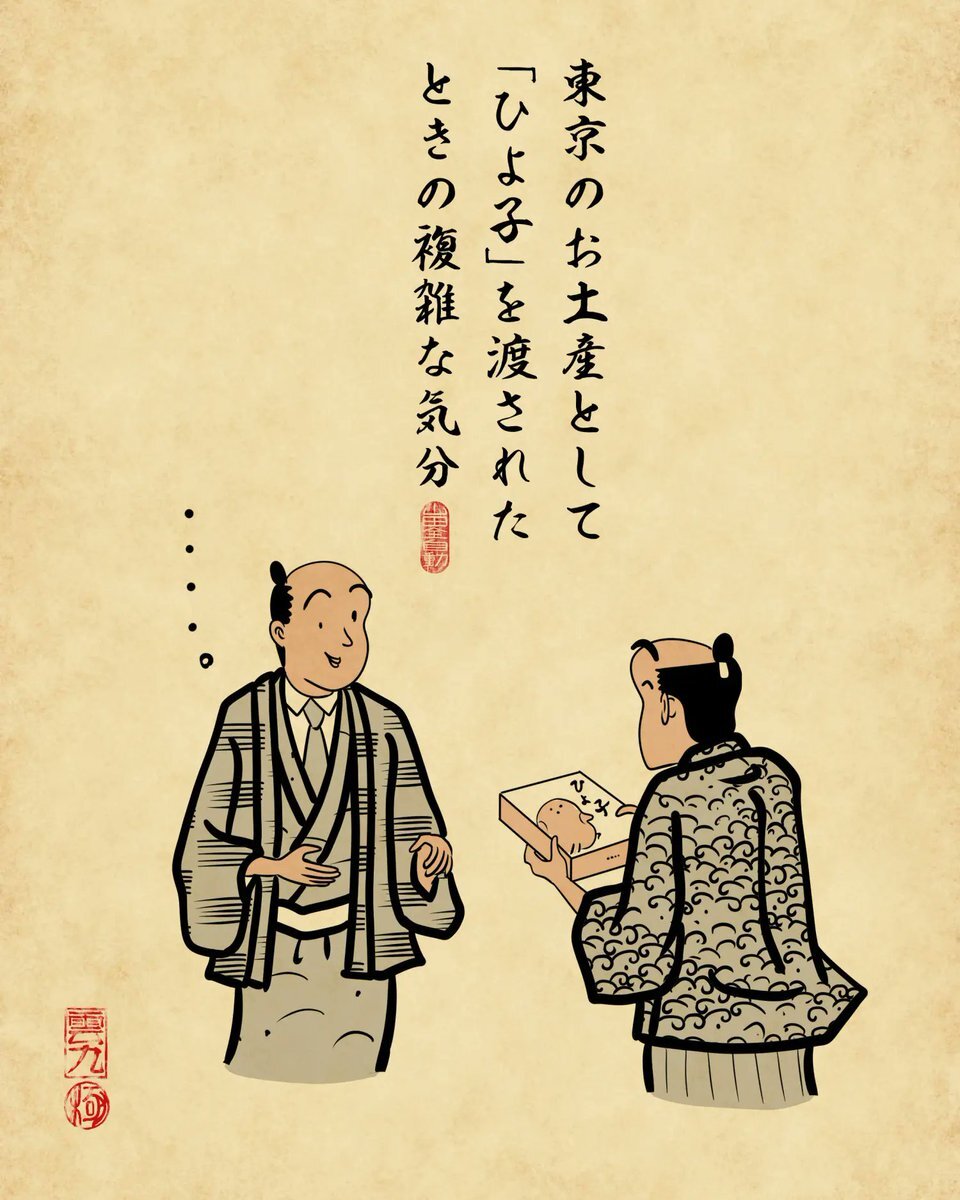 東京のお土産として
「ひよ子」を渡された
ときの複雑な気分
ひよ子